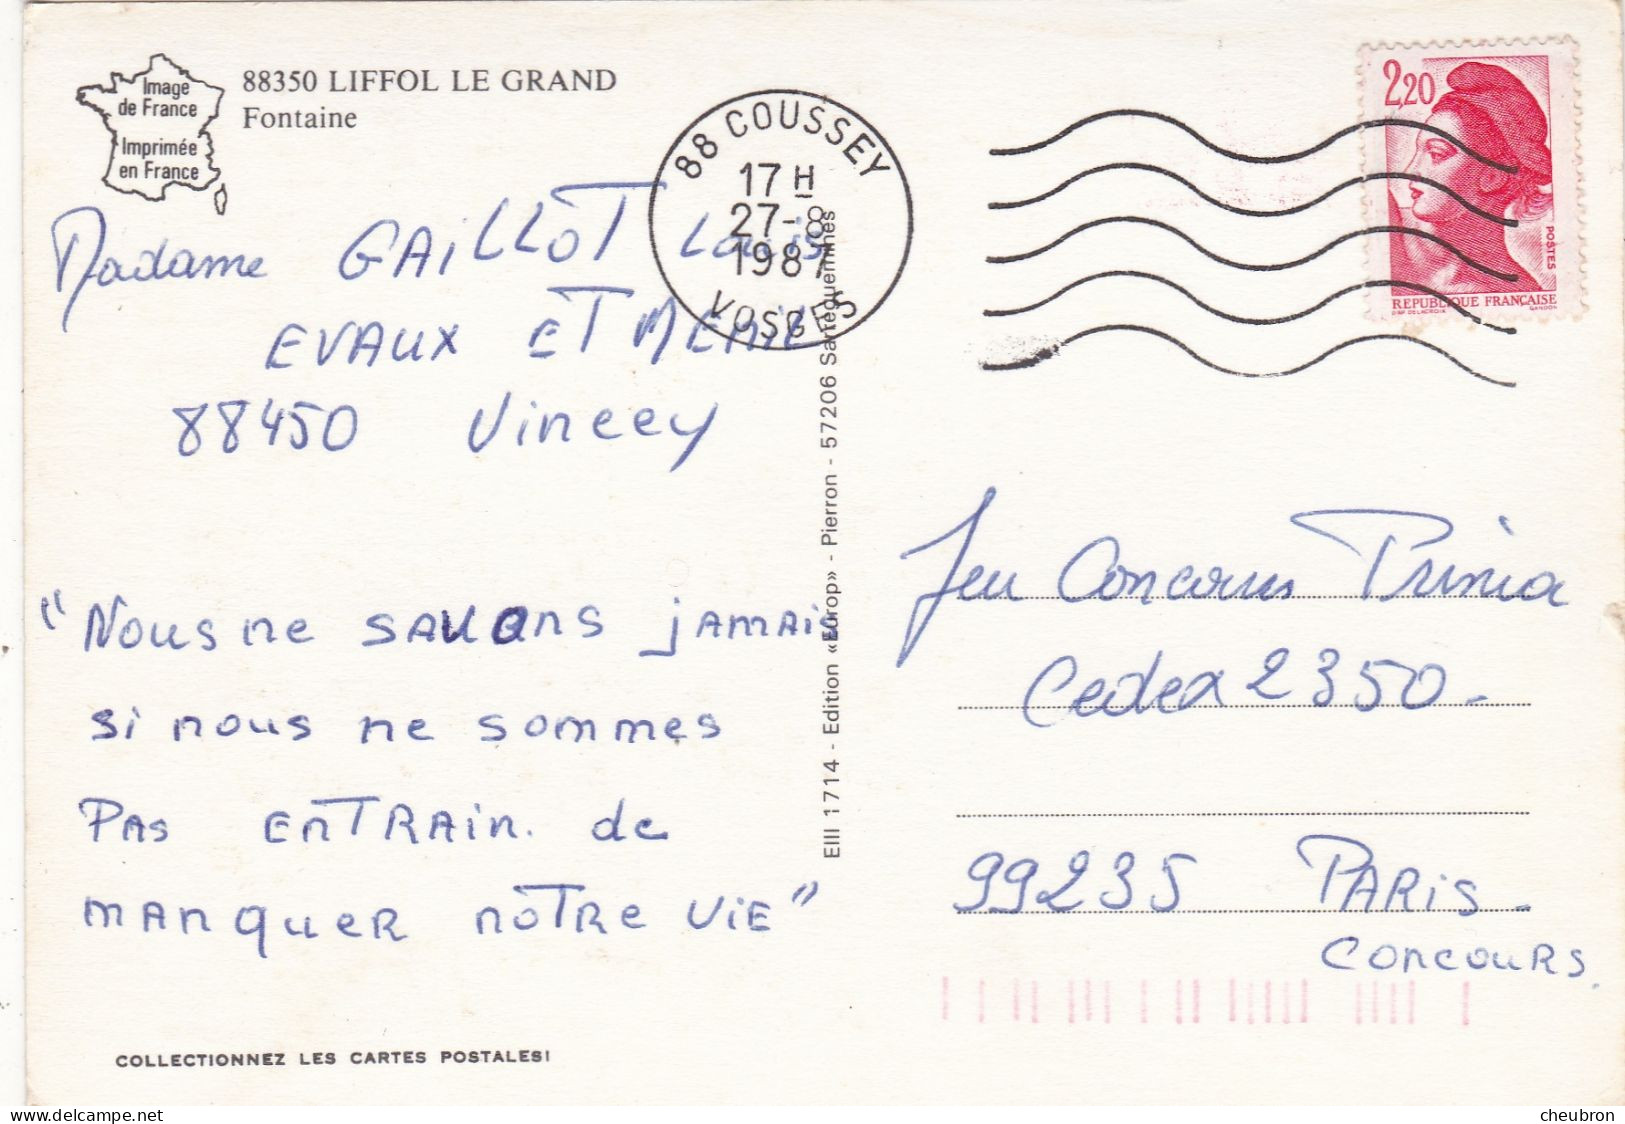 Image
de France
Imprimée
en France
88350 LIFFOL LE GRAND
Fontaine
88 COUSSEY
17 H
27-8
1987
VOSGES
2,20
POSTES
REPUBLIQUE FRANÇAISE
D'AP. DELACROIX GANDON
Madame GAILLOT Louis
EVAUX ET MENIL
88450 Vincey
"Nous ne savons jamais
si nous ne sommes
Pas entrain de
manquer nôtre vie"
EIII 1714 - Edition «Europ» - Pierron - 57206 Sarreguemines
Jeu Concours Prisma
Cedex 2350-
99235 PARIS-
Concours.
COLLECTIONNEZ LES CARTES POSTALES!
www.delcampe.net
cheubron